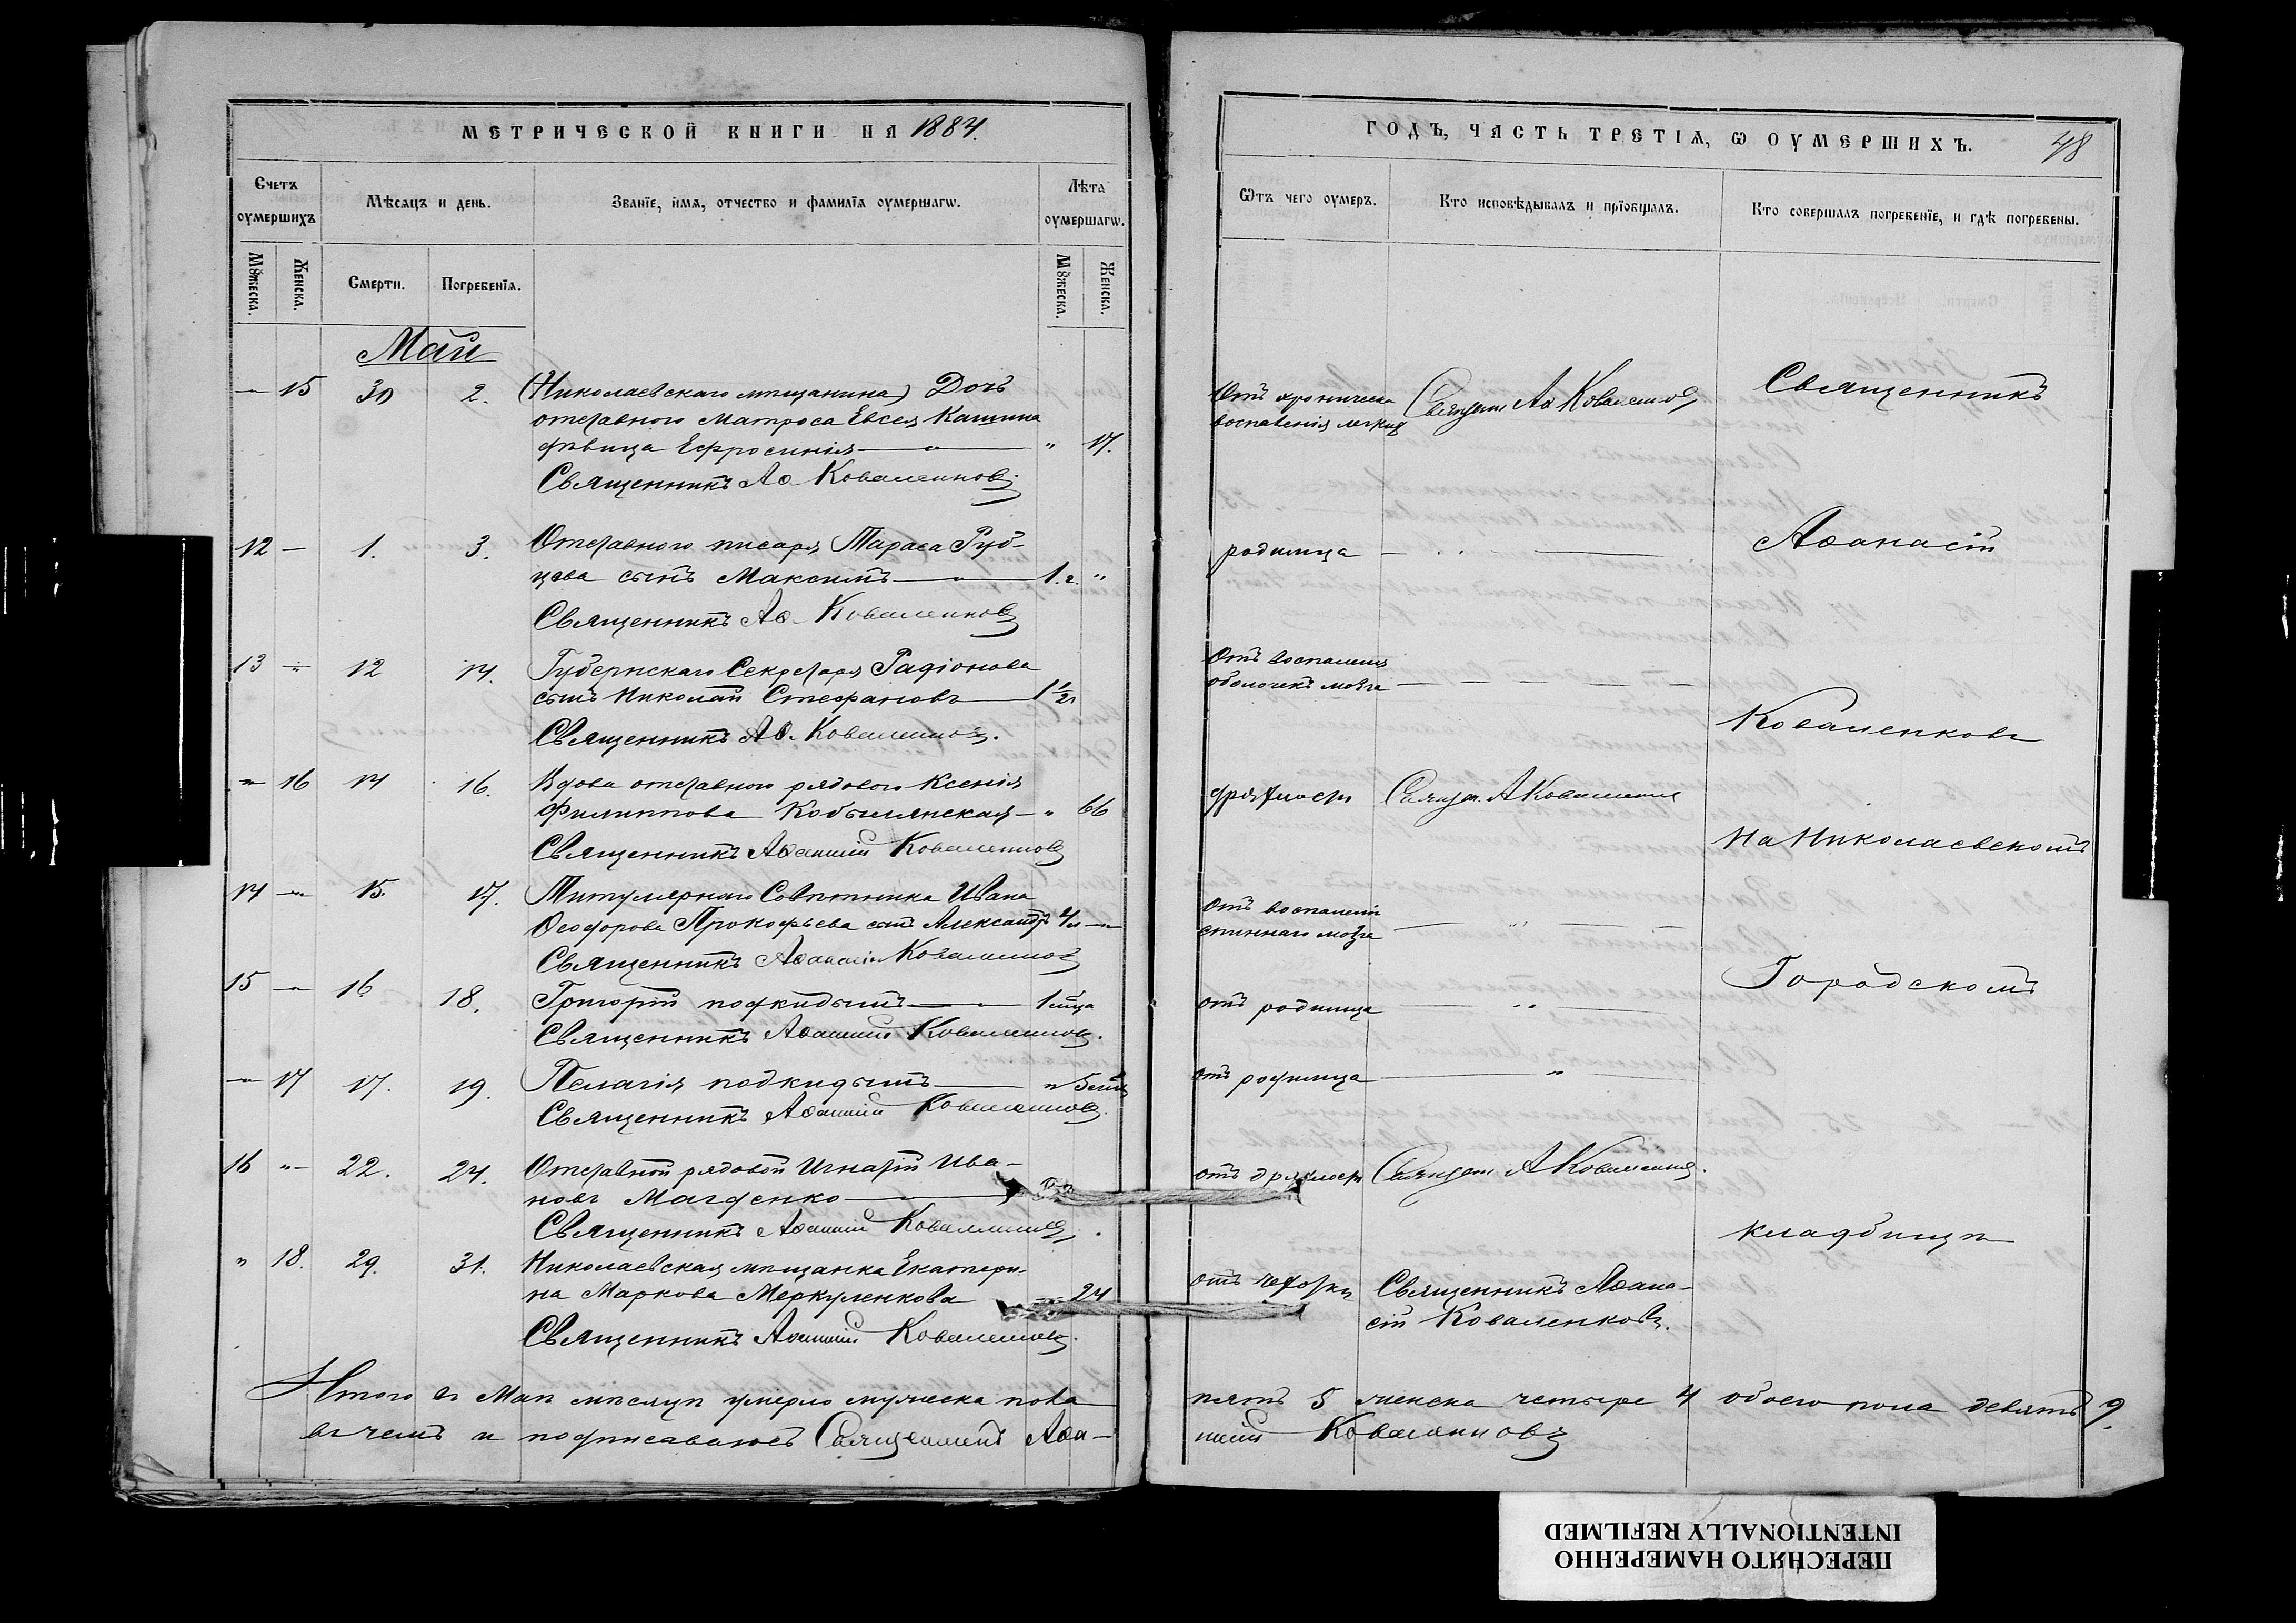 МЕТРИЧЕСКОЙ КНИГИ НА 1884.
Счетъ оумершихъ
Мѣсяцъ и день.
Званїе, имя, отчество и фамилїя оумершагѡ.
Лѣта оумершагѡ.
Мꙋжеска. Женска. Смерти. Погребенїя. Мꙋжеска. Женска.
Май
— 15 30 2. (Николаевскаго мѣщанина) Дочь
отставного матроса Евсея Кашина
дѣвица Ефросинія — " 17.
Священникъ Аѳ Коваленковъ
12 — 1. 3. Отставного писаря Тараса Руб-
цова сынъ Максимъ — 1. г. "
Священникъ Аѳ. Коваленковъ
13 — 12 14. Губернскаго Секретаря Радіонова
сынъ Николай Стефановъ — 1 1/2
Священникъ Аѳ. Коваленковъ.
— 16 14 16. Вдова отставного рядового Ксенія
Филиппова Кобылянская — " 66
Священникъ Аѳанасій Коваленковъ
14 — 15. 17. Титулярнаго Совѣтника Ивана
Ѳеодорова Прокофьева сынъ Александръ 4 —
Священникъ Аѳанасій Коваленковъ
15 — 16 18. Григорій подкидышъ — 1 мѣсяца
Священникъ Аѳанасій Коваленковъ.
— 17 17. 19. Пелагія подкидышъ — " 5
Священникъ Аѳанасій Коваленковъ.
16 "– 22. 24. Отставной рядовой Игнатій Ива-
новъ Магденко —
Священникъ Аѳанасій Коваленковъ.
" 18. 29. 31. Николаевская мѣщанка Екатери-
на Маркова Меркуленкова — 24
Священникъ Аѳанасій Коваленковъ.
Итого въ Маѣ мѣсяцѣ умерло мужеска пола
въ чемъ и подписываюсь Священникъ Аѳа-
ГОДЪ, ЧАСТЬ ТРЕТІѦ, Ѡ ОУМЕРШИХЪ. 48
Ѿтъ чего оумеръ.
Кто исповѣдывалъ и прїобщалъ.
Кто совершалъ погребенїе, и гдѣ погребены.
Отъ хроническа
воспаленія легкихъ
Священ Аѳ Коваленковъ
Священникъ
родимца — —
Аѳанасій
Отъ воспаленія
оболочекъ мозга — — — —
Коваленковъ
дряхлости Священ. А Коваленковъ
на Николаевскомъ
Отъ воспаленія
спиннаго мозга — " —
Городскомъ
отъ родимца — " —
отъ родимца — " —
отъ дряхлости Священ А Коваленковъ.
кладбищѣ
отъ чахотки Священникъ Аѳана-
сій Коваленковъ.
пять 5 женска четыре 4 обоего пола девять 9.
насій Коваленковъ
ПЕРЕСНЯТО НАМЕРЕННО
INTENTIONALLY REFILMED